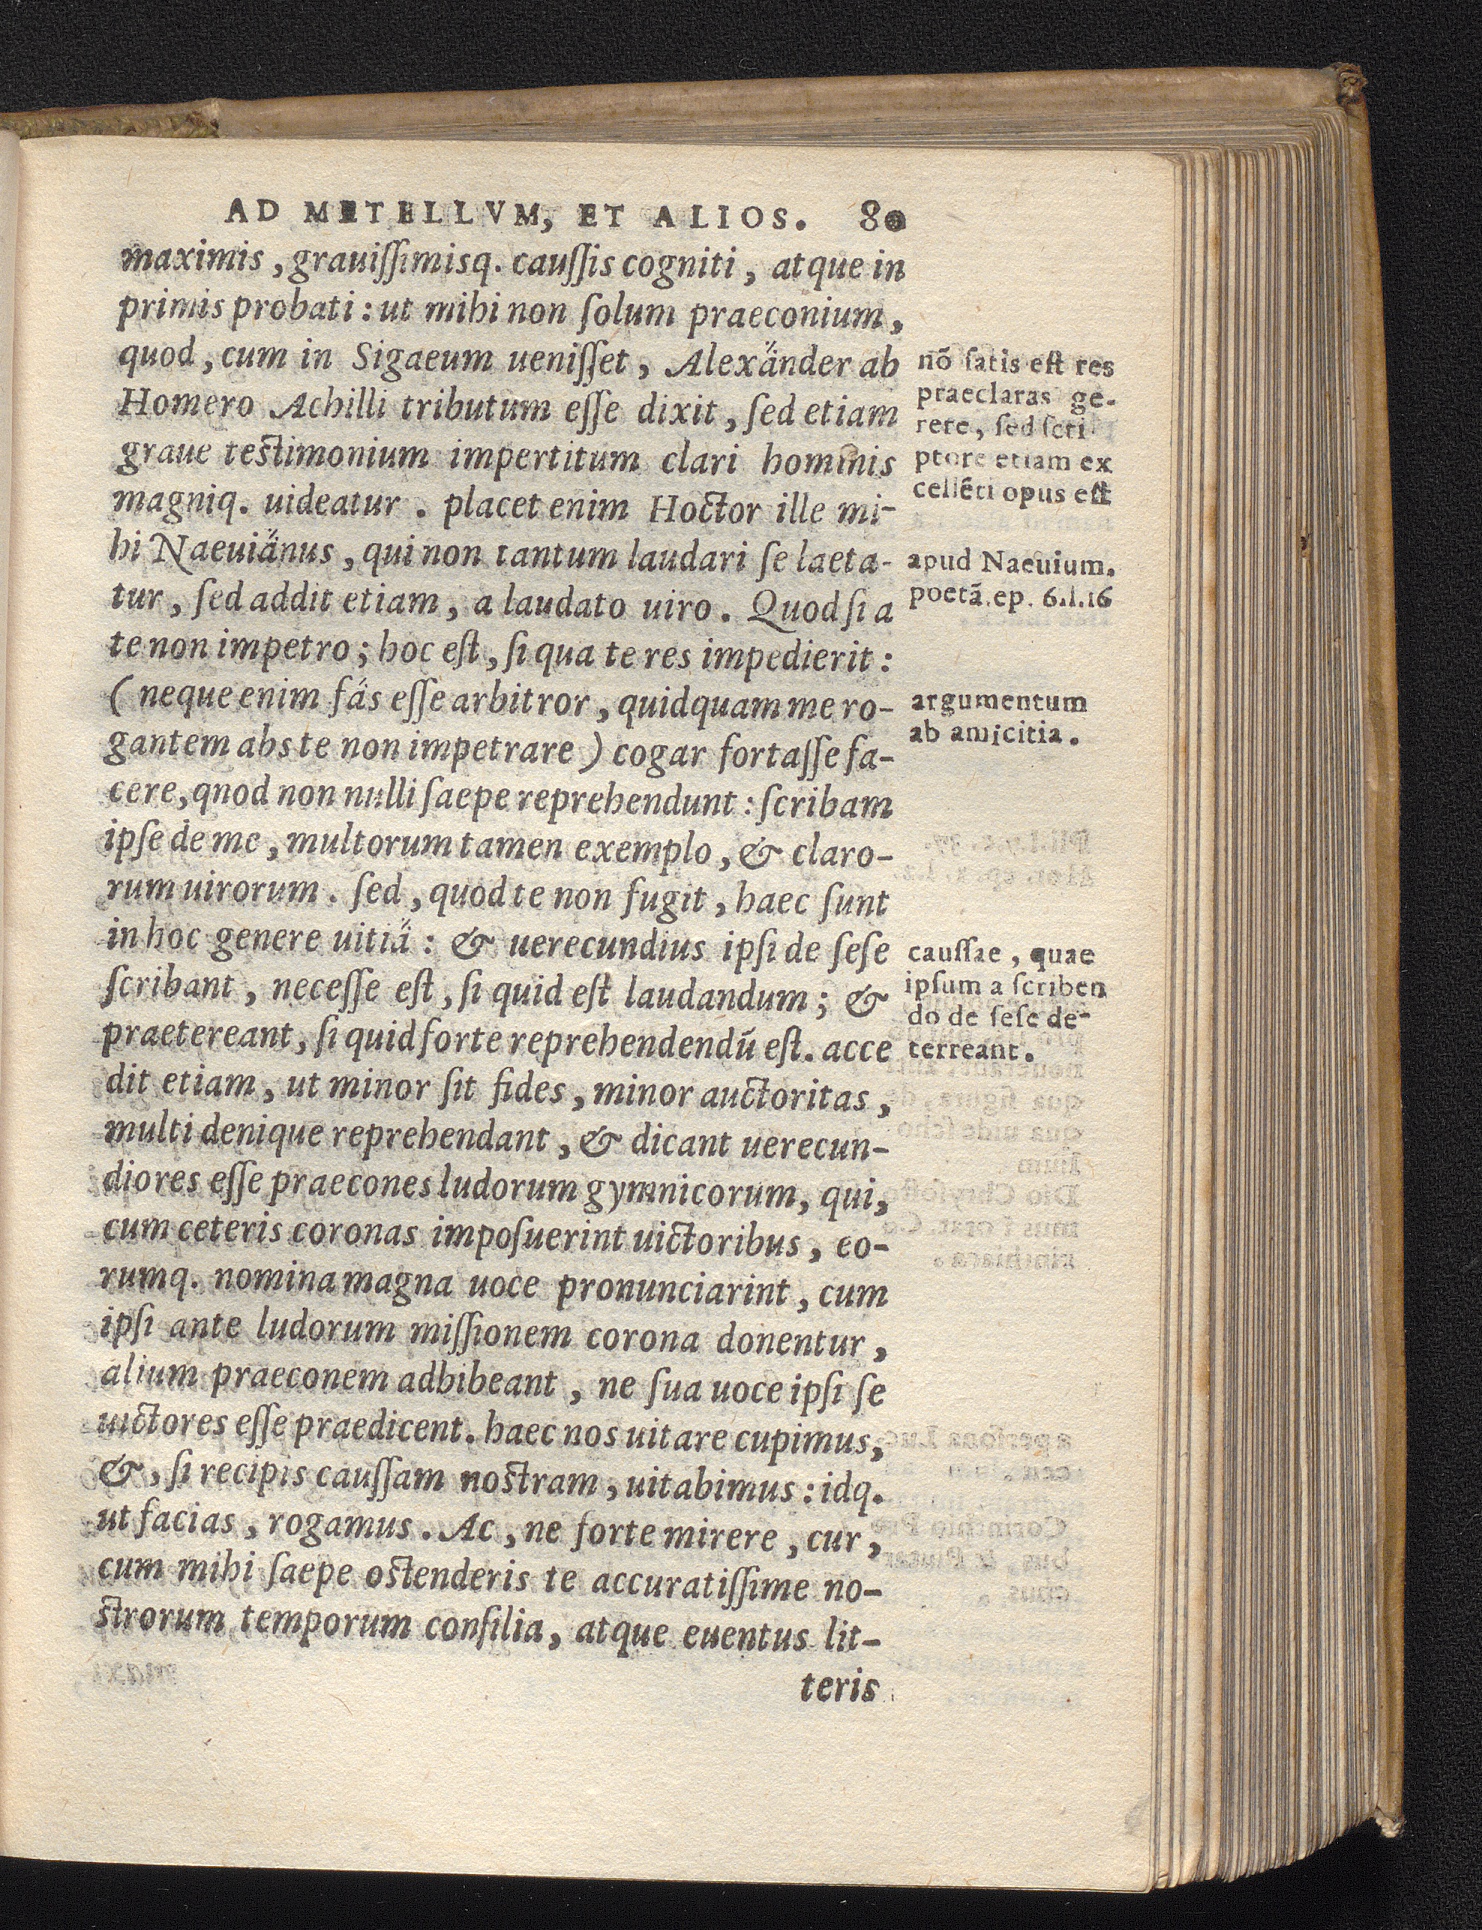 AD METELLVM, ET ALIOS. 80
maximis, grauissimisq. caussis cogniti, atque in
primis probati: ut mihi non solum praeconium,
quod, cum in Sigaeum uenisset, Alexänder ab
Homero Achilli tributum esse dixit, sed etiam
graue testimonium impertitum clari hominis
magniq. uideatur. placet enim Hoctor ille mi-
hi Naeuiänus, qui non tantum laudari se laeta-
tur, sed addit etiam, a laudato uiro. Quod si a
te non impetro; hoc est, si qua te res impedierit:
(neque enim fäs esse arbitror, quidquam me ro-
gantem abs te non impetrare) cogar fortasse fa-
cere, qnod non nulli saepe reprehendunt: scribam
ipse de me, multorum tamen exemplo, & claro-
rum uirorum. sed, quod te non fugit, haec sunt
in hoc genere uitiä: & uerecundius ipsi de sese
scribant, necesse est, si quid est laudandum; &
praetereant, si quid forte reprehendendū est. acce
dit etiam, ut minor sit fides, minor auctoritas,
multi denique reprehendant, & dicant uerecun-
diores esse praecones ludorum gymnicorum, qui,
cum ceteris coronas imposuerint uictoribus, eo-
rumq. nomina magna uoce pronunciarint, cum
ipsi ante ludorum missionem corona donentur,
alium praeconem adhibeant, ne sua uoce ipsi se
uictores esse praedicent. haec nos uitare cupimus,
&, si recipis caussam nostram, uitabimus: idq.
ut facias, rogamus. Ac, ne forte mirere, cur,
cum mihi saepe ostenderis te accuratissime no-
strorum temporum consilia, atque euentus lit-
teris
nō satis est res
praeclaras ge-
rere, sed scri
ptore etiam ex
cellēti opus est
apud Naeuium.
poetā. ep. 6.l.16
argumentum
ab amicitia.
caussae, quae
ipsum a scriben
do de sese de-
terreant.